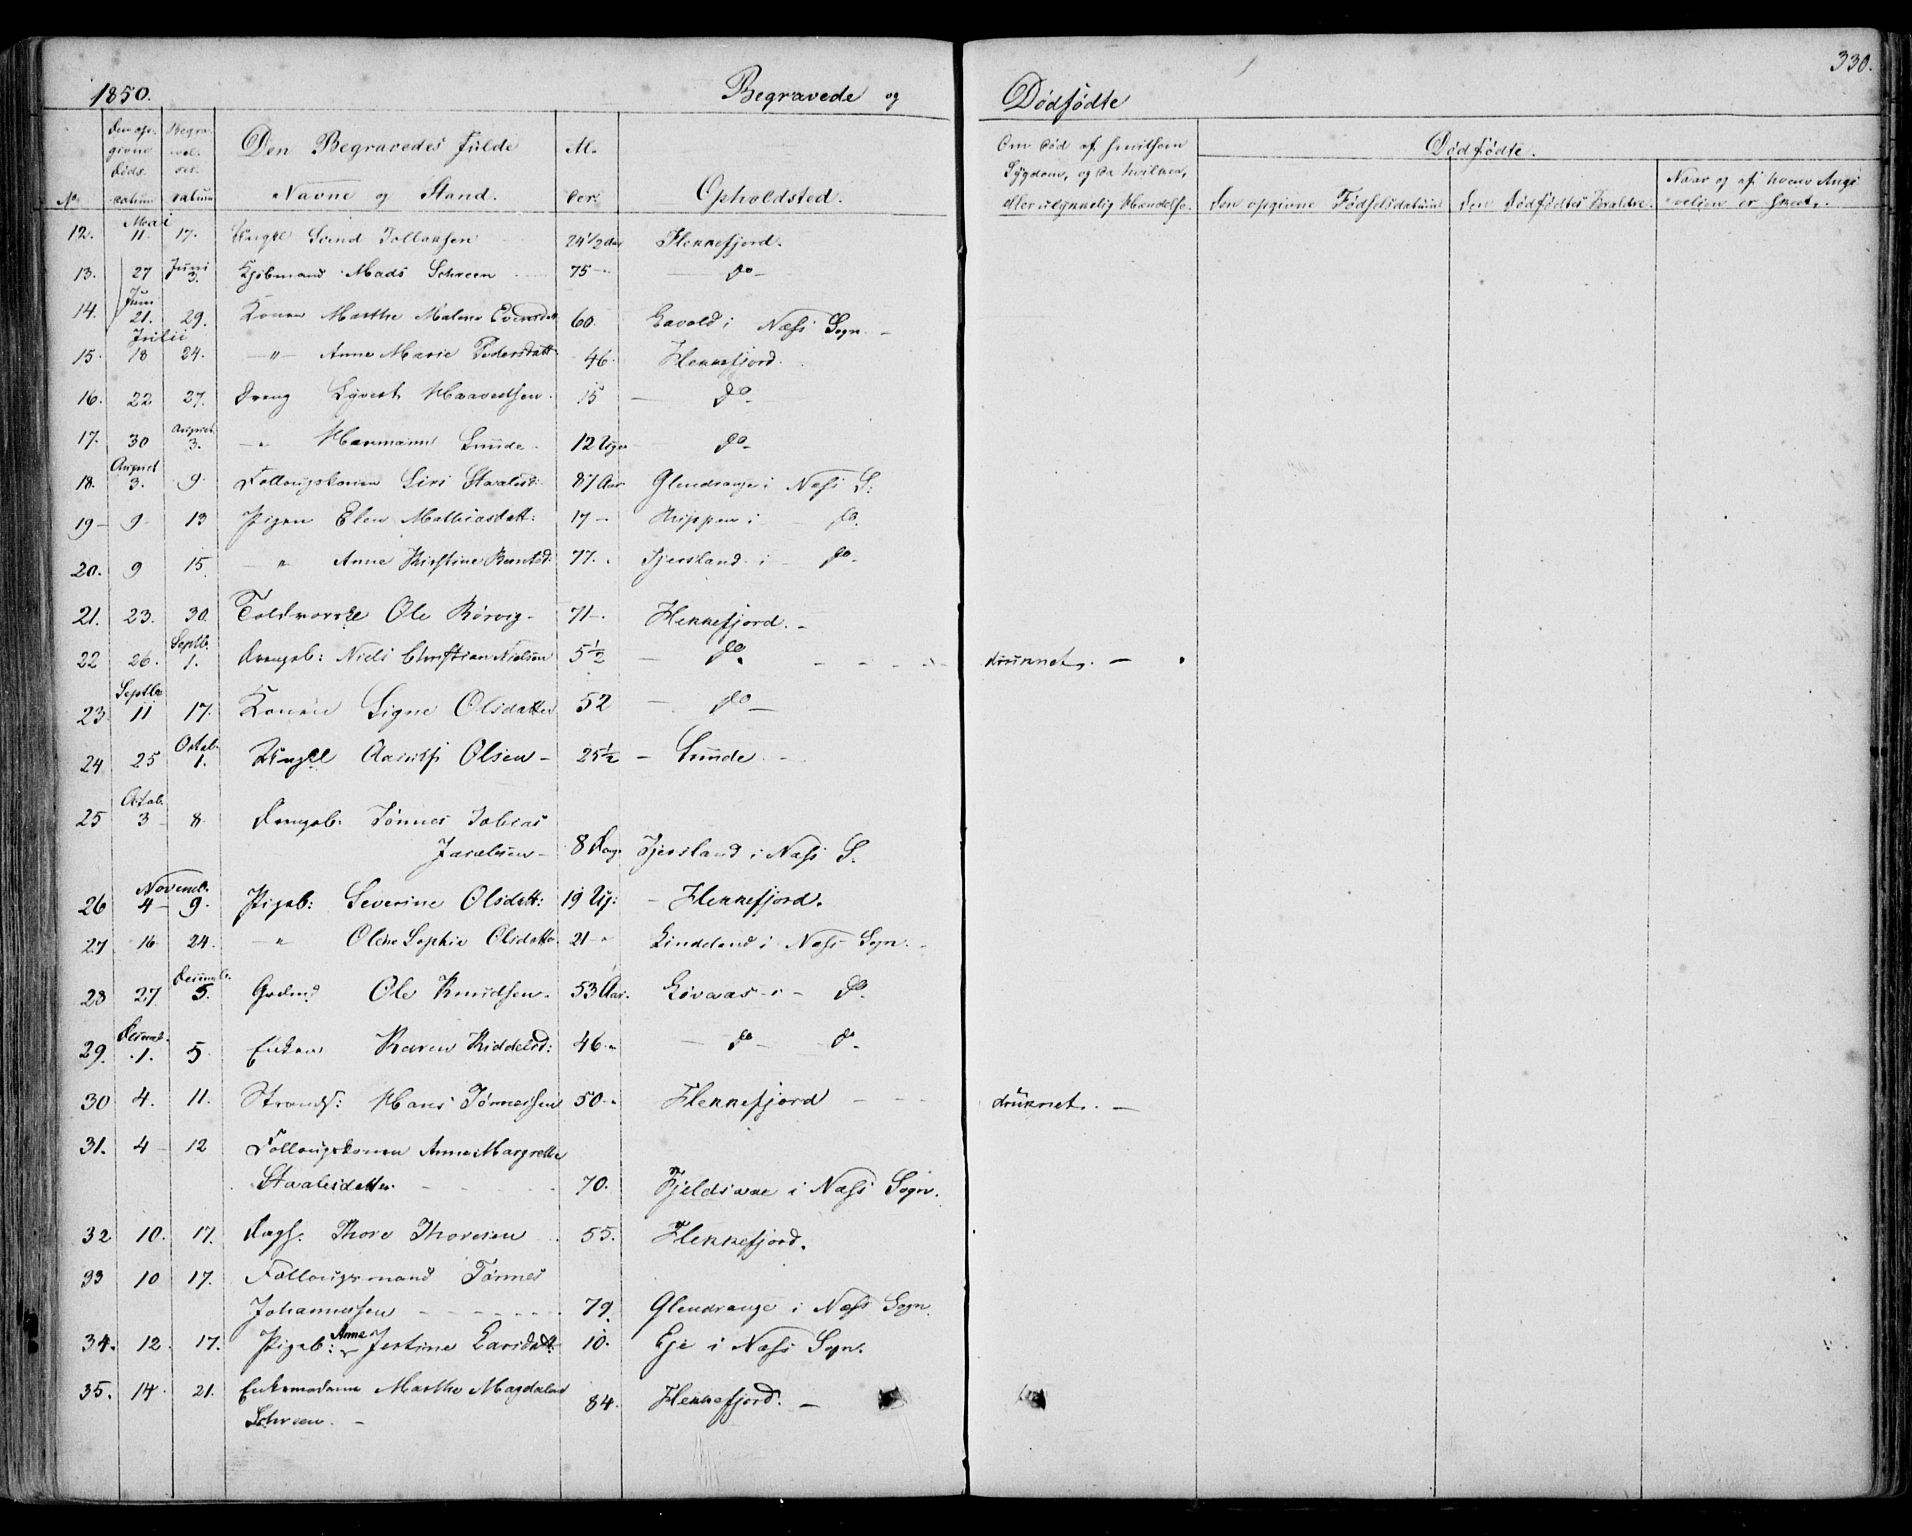 330.
1850. Begravede og Dødfødte
No. Den op- givne Døds- datum Begra- vel- ses- datum Den Begravedes fulde Navne og Stand. Al- der. Opholdsted. Om Død af smitsom Sygdom, og da hvilken, eller ulykkelig Hændelse. Dødfødte.
Den opgivne Fødselsdatum Den Dødfødtes Forældre. Naar og af hvem Angi- velsen er skeet.
Mai
12. 11. 17. Ungkl Svend Tollaksen 24 1/2 Flekkefjord.
Juni
13. 27 3. Kjøbmand Mads Schreen 75 - do -
Juni
14. 21. 29. Konen Marthe Malene 60. i Næss Sogn. -
Julii
15. 18 24. - " - Anne Marie Pedersdatt 46. Flekkefjord.
16. 22 27. Dreng Sivert 15 - do -
August
17. 30 3. - " Hermann Sunde 12 Uger - do -
August
18. 3. 9. Follougskonen Siri Staalesd: 87 Aar Glendrange i Næss S:
19 - 9 - 13 Pigen Elen Mathiasdatt: 17 - Trippen i do.
20. 9 15. - " Anne Kirstine Berntsd: 77. Fjersland i - do -
21. 23. 30. Ole Rørvig - 71 - Flekkefjord. -
Septb.
22 26. 1. Drengeb: Niels Christian Nielsen 5 1/2 - do - druknet. -
Septbr
23 11 17. Konen Signe Olsdatter 52 - do -
Octob.
24 25 1. Ungkl Olsen - 25 1/2 - Sunde -
Octob.
25 3 - 8. Drengeb: Tønnes Tobias
Jacobsen - 8 Dage Fjersland i Næss S.
Novemb.
26 4 - 9. Pigeb: Severine Olsdatt: 19 Ug: - Flekkefjord.
27. 16 24. - " Olene Sophie Olsdatter 21 - " Lindeland i Næss Sogn. -
Decemb.
28 27. 5. Gaardmd Ole Knudsen. 53 Aar. Løvaas i - do -
Decemb.
29. 1. 5. Enken Karen 46 - " - do - do -
30 4. 11. Strands: Hans Tønnessen 50 - " Flekkefjord - druknet. -
31. 4 - 12 Follougskonen Anne Margrethe
Staalesdatter. 70. i Næss Sogn.
32 10. 17. Dags. Thore Thoresen 55. Flekkefjord.
33 10 17. Follougsmand Tønnes
Johannessen 79. Glendrange i Næss Sogn.
34. 12. 17. Pigeb: Anne Jestine Larsdatt: 10. Eje i Næss Sogn.
35. 14 21. Enkemadame Marthe Magdalene
Schreen. - 84. Flekkefjord. -